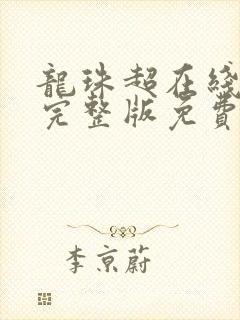 龍珠超在綫
完整版免費
李京蔚